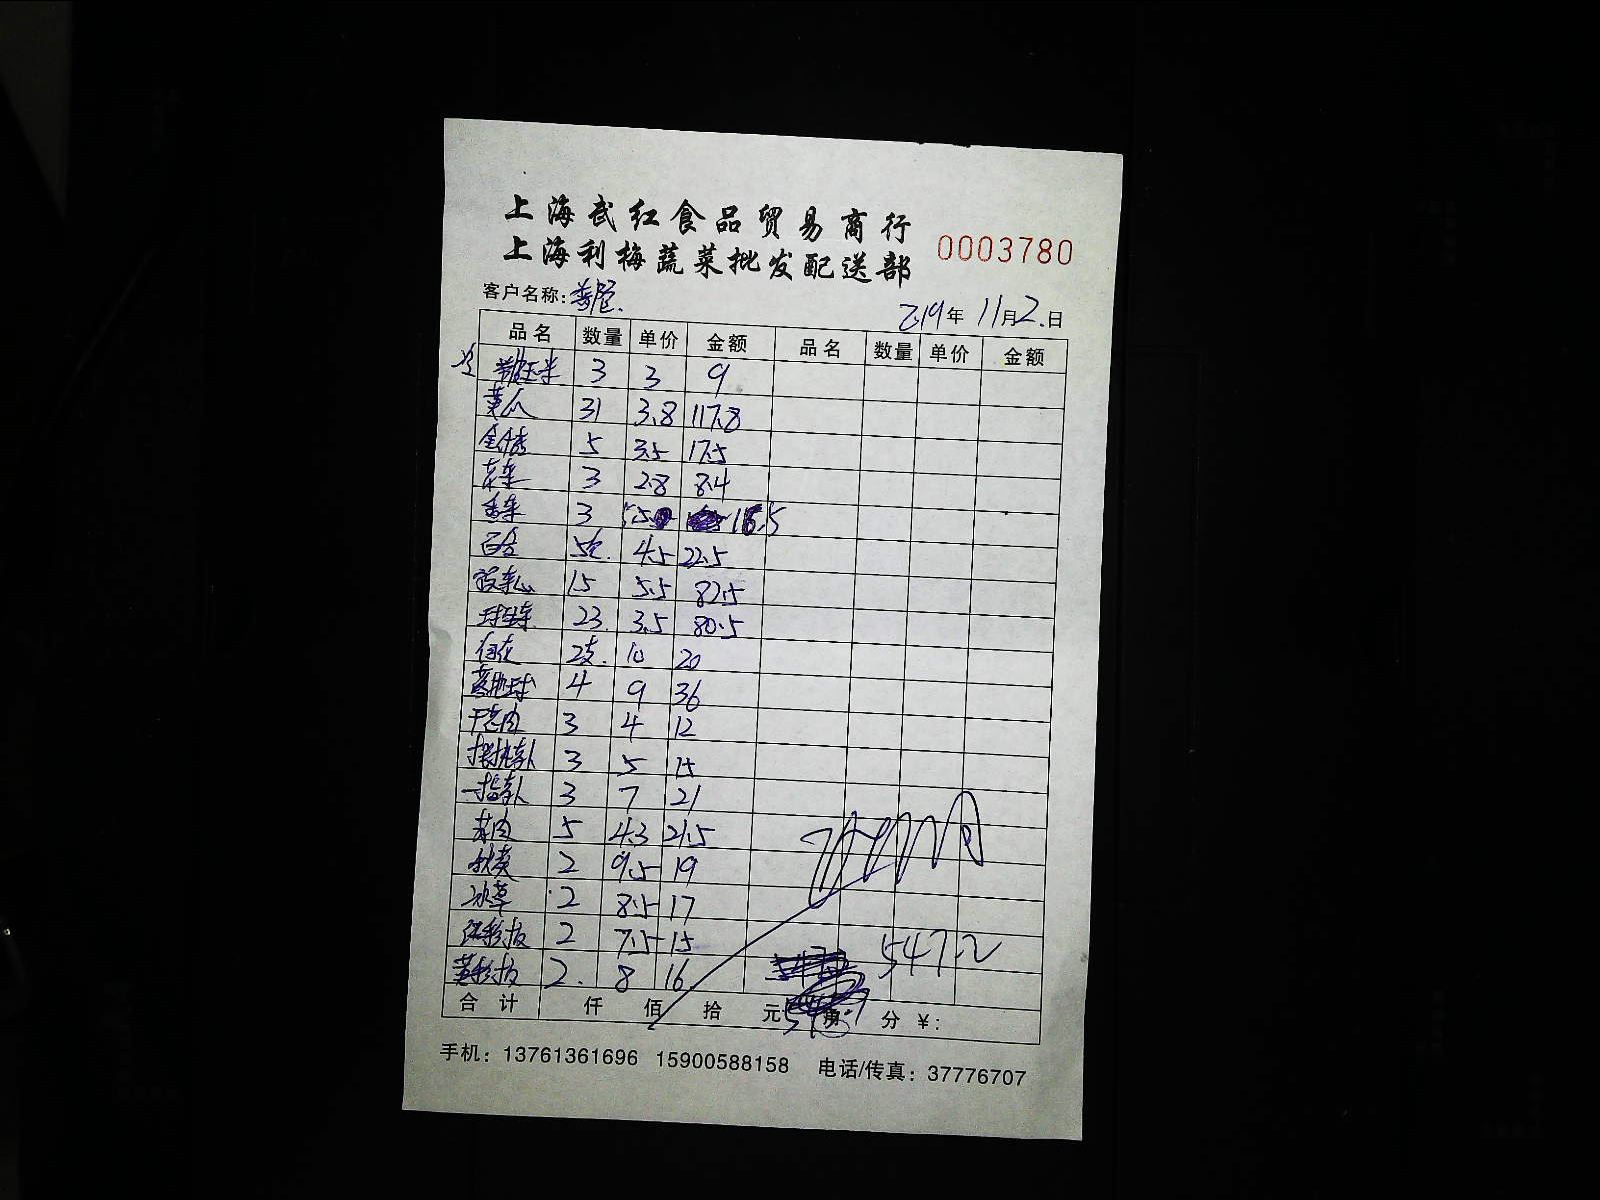 上海武红食品贸易商行
上海利梅蔬菜批发配送部
0003780
客户名称:
2019年 11月2.日
品名 数量 单价 金额 品名 数量 单价 金额
玉米 3 3 9
黄瓜 31 3.8 117.8
5 3.5 17.5
花菜 3 2.8 8.4
香菜 3 16.5
百合 5包. 4.5 22.5
菠菜心 15 5.5 82.5
球生菜 23. 3.5 80.5
2支. 10 20
4 9 36
干葱肉 3 4 12
3 5 15
3 7 21
5 4.3 21.5
秋葵 2 9.5 19
冰草 2 8.5 17
2 7.5 15
2. 8 16.
547.2
合计 仟 佰 拾 元 角 分 ¥:
手机: 13761361696 15900588158 电话/传真: 37776707